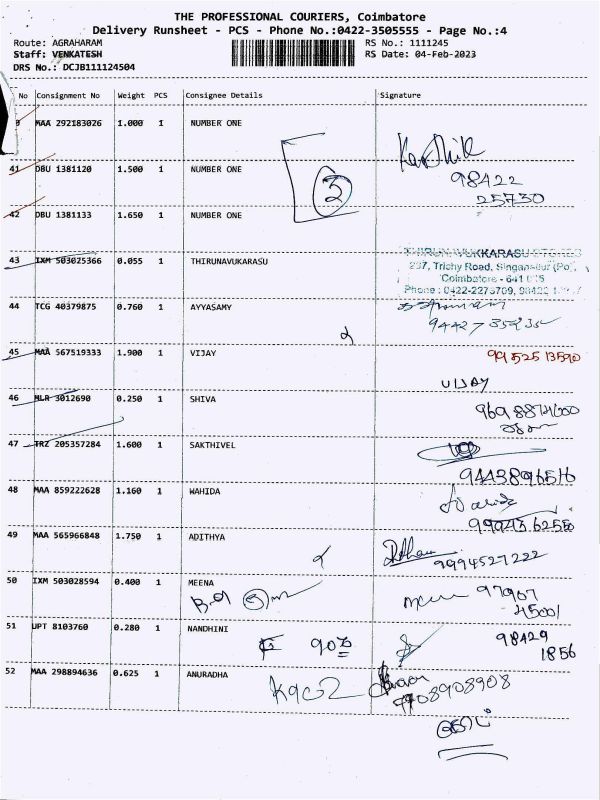 THE PROFESSIONAL COURIERS, Coimbatore
Delivery Runsheet - PCS - Phone No.:0422-3505555 - Page No.:4
Route: AGRAHARAM RS No.: 1111245
Staff: VENKATESH RS Date: 04-Feb-2023
DRS No.: DCJB111124504
No Consignment No Weight PCS Consignee Details Signature
MAA 292183026 1.000 1 NUMBER ONE
Karthik
41 DBU 1381120 1.500 1 NUMBER ONE
3 98422
25730
42 DBU 1381133 1.650 1 NUMBER ONE
43 IXM 503025366 0.055 1 THIRUNAVUKARASU
THIRUNAVUKKARASU STORES
237, Trichy Road, Singanallur (Po),
Coimbatore - 641 005
Phone : 0422-2273709,
44 TCG 40379875 0.760 1 AYYASAMY
45 MAA 567519333 1.900 1 VIJAY
99525 13590
VIJAY
46 MLR 3012690 0.250 1 SHIVA
47 TRZ 205357284 1.600 1 SAKTHIVEL
9443896516
48 MAA 859222628 1.160 1 WAHIDA
Wahida
9994562550
49 MAA 565966848 1.750 1 ADITHYA
9994527222
50 IXM 503028594 0.400 1 MEENA
97907
45001
51 UPT 8103760 0.280 1 NANDHINI
98429
1856
52 MAA 298894636 0.625 1 ANURADHA
9708908908